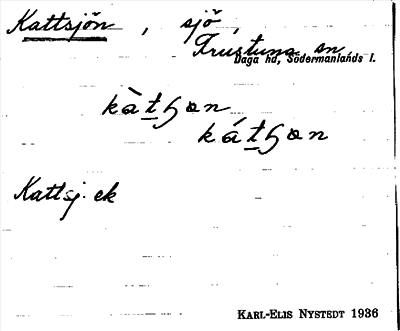 Kattsjön, sjö,
Frustuna sn
Daga hd, Södermanlands l.
kàtꞕɷn
kátꞕɷn
Kattsj. ek
KARL-ELIS NYSTEDT 1936